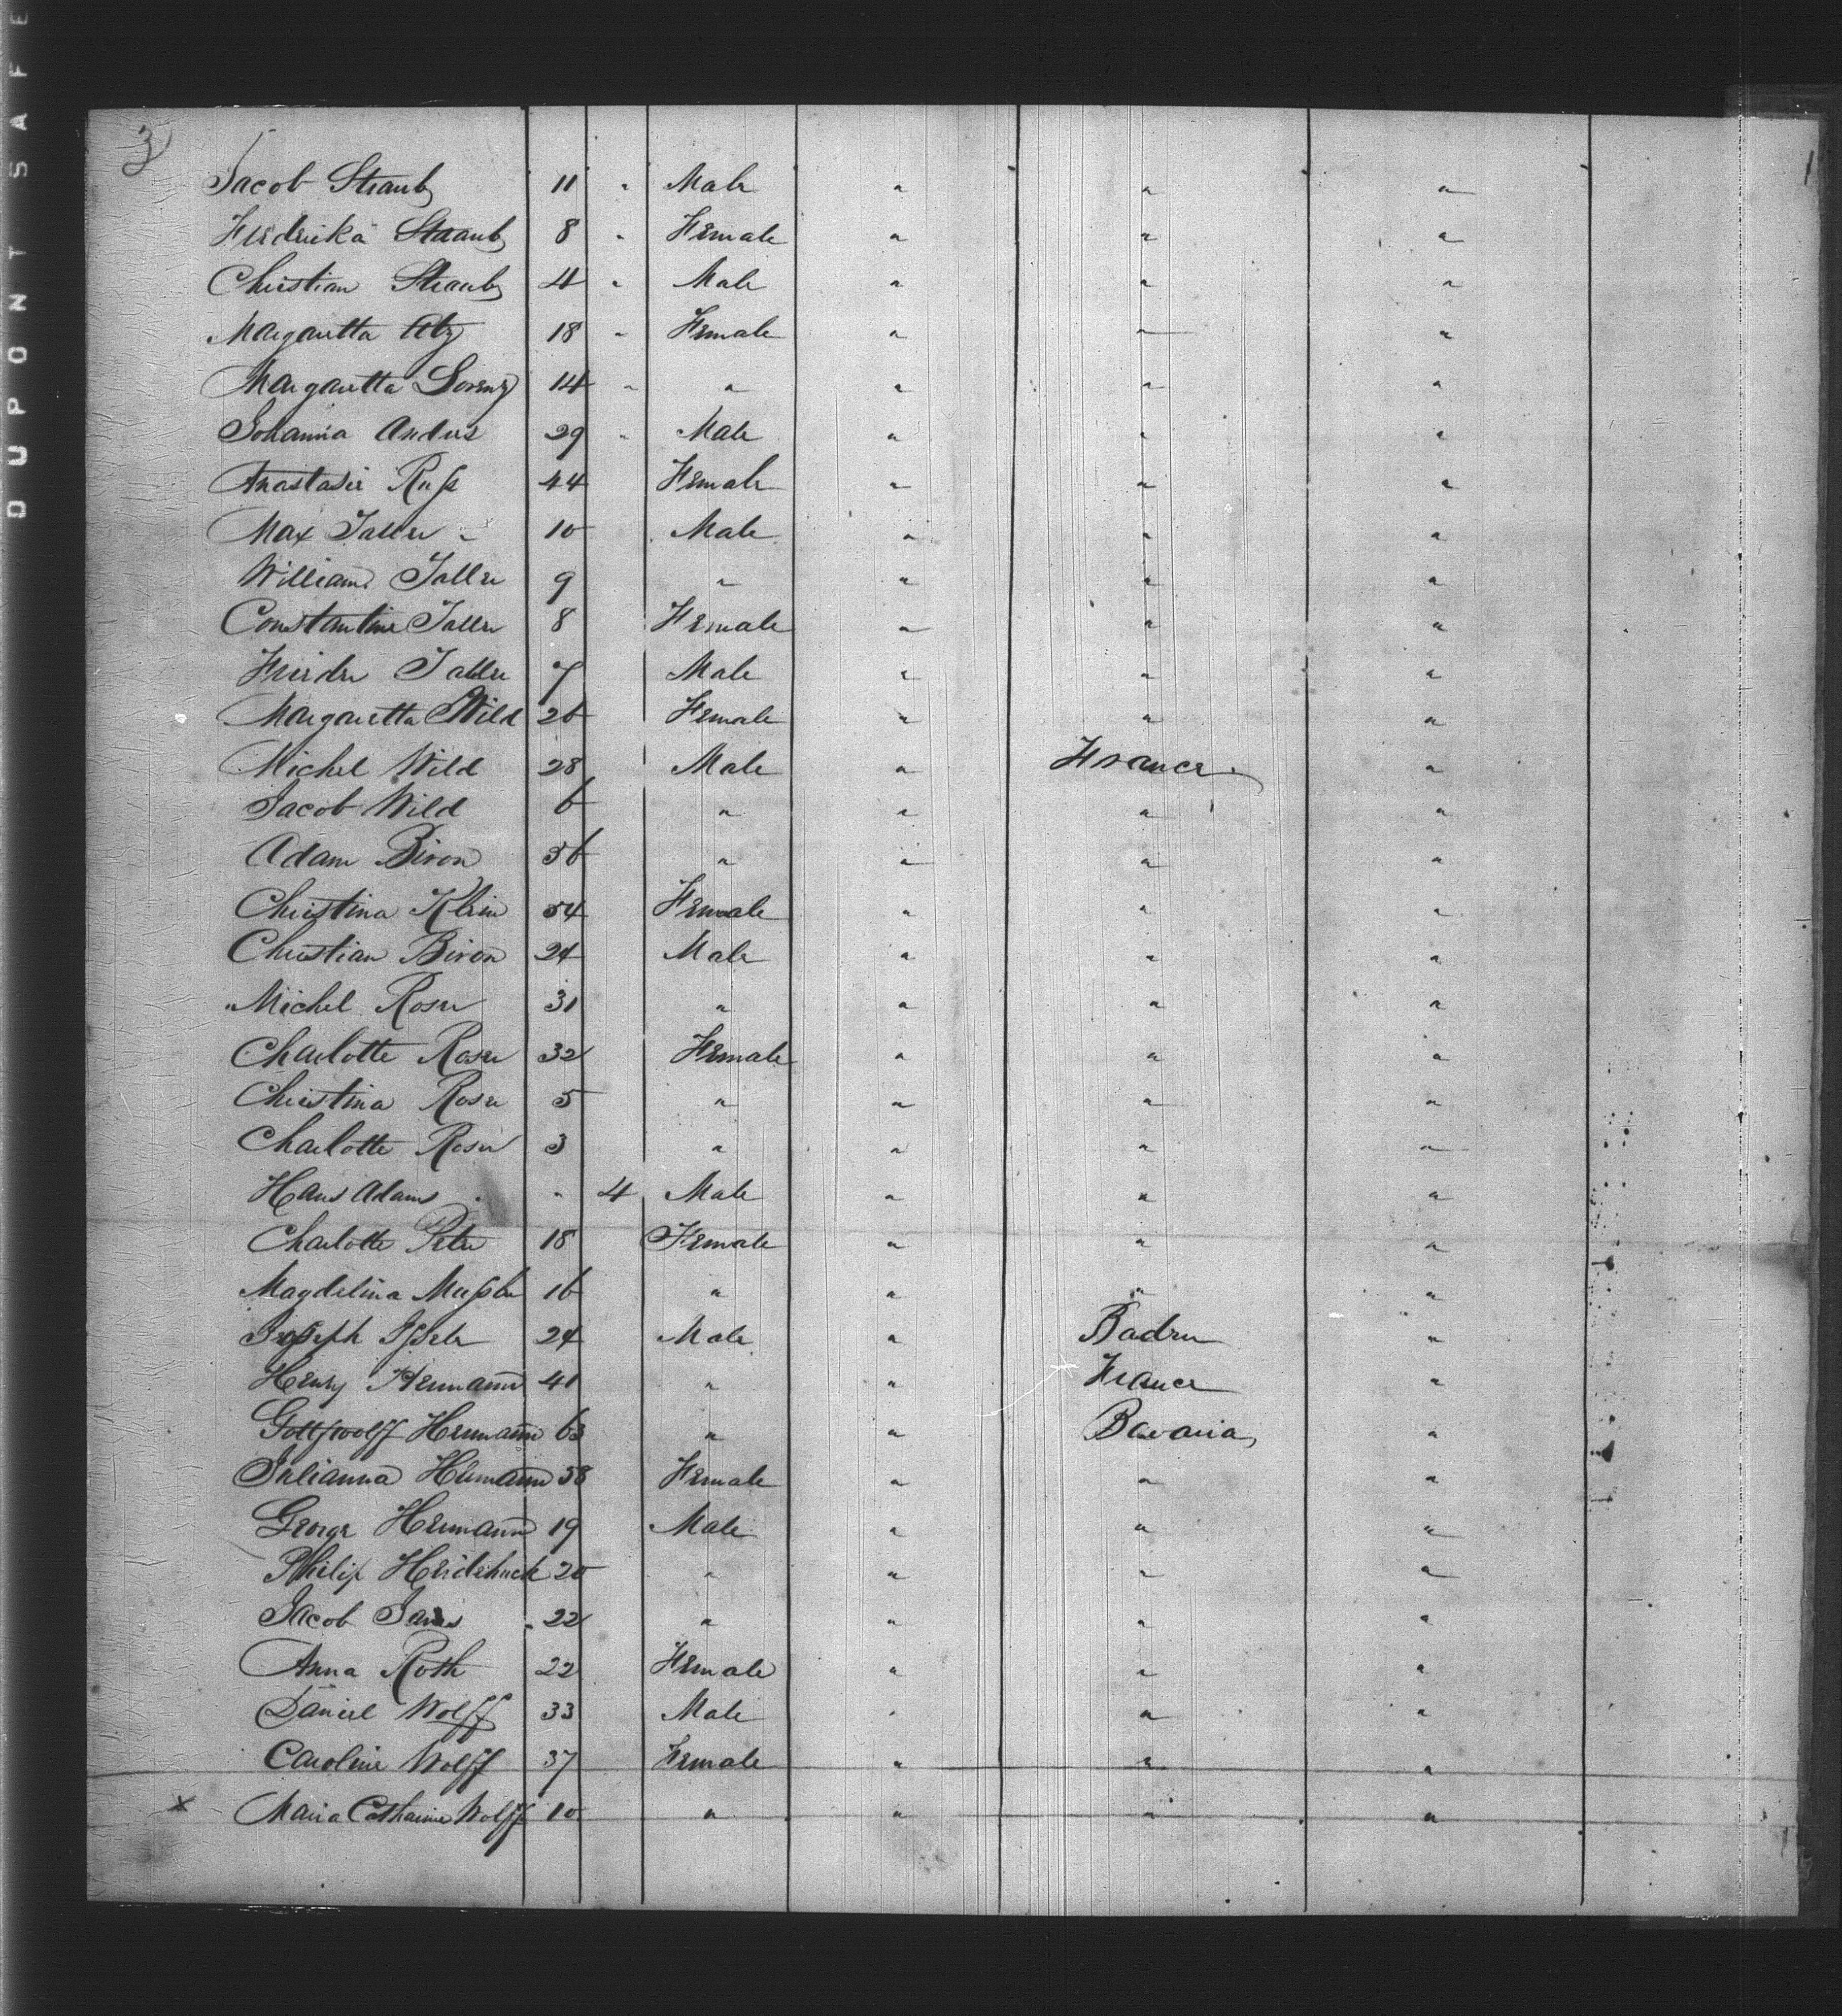 DUPONT SAFE
3
Jacob Straub 11 " Male " " "
Fredericka Straub 8 " Female " " "
Christian Straub 4 " Male " " "
Margaretta Utz 18 " Female " " "
Margaretta Lorenz 14 " " " " "
Johanna Andres 29 " Male " " "
Anastasia Russ 44 Female " " "
Max Faller 10 Male " " "
William Faller 9 " " " "
Constantine Faller 8 Female " " "
Faller 7 Male " " "
Margaretta Wild 26 Female " " "
Michel Wild 28 Male " France "
Jacob Wild 6 " " " "
Adam Biron 56 " " " "
Christina Klein 54 Female " " "
Christian Biron 24 Male " " "
Michel Roser 31 " " " "
Charlotte Roser 32 Female " " "
Christina Roser 5 " " " "
Charlotte Roser 3 " " " "
Hans Adams " 4 Male " " "
Charlotte Peter 18 Female " " "
Magdelina 16 " " " "
Joseph 24 Male " Baden "
Henry Hermann 41 " " France "
Hermann 63 " " Bavaria "
Julianna Hermann 58 Female " " "
George Hermann 19 Male " " "
Philip 20 " " " "
Jacob " 22 " " " "
Anna Roth 22 Female " " "
Daniel Wolff 33 Male " " "
Caroline Wolff 37 Female " " "
x Maria Catharine Wolff 10 " " " "